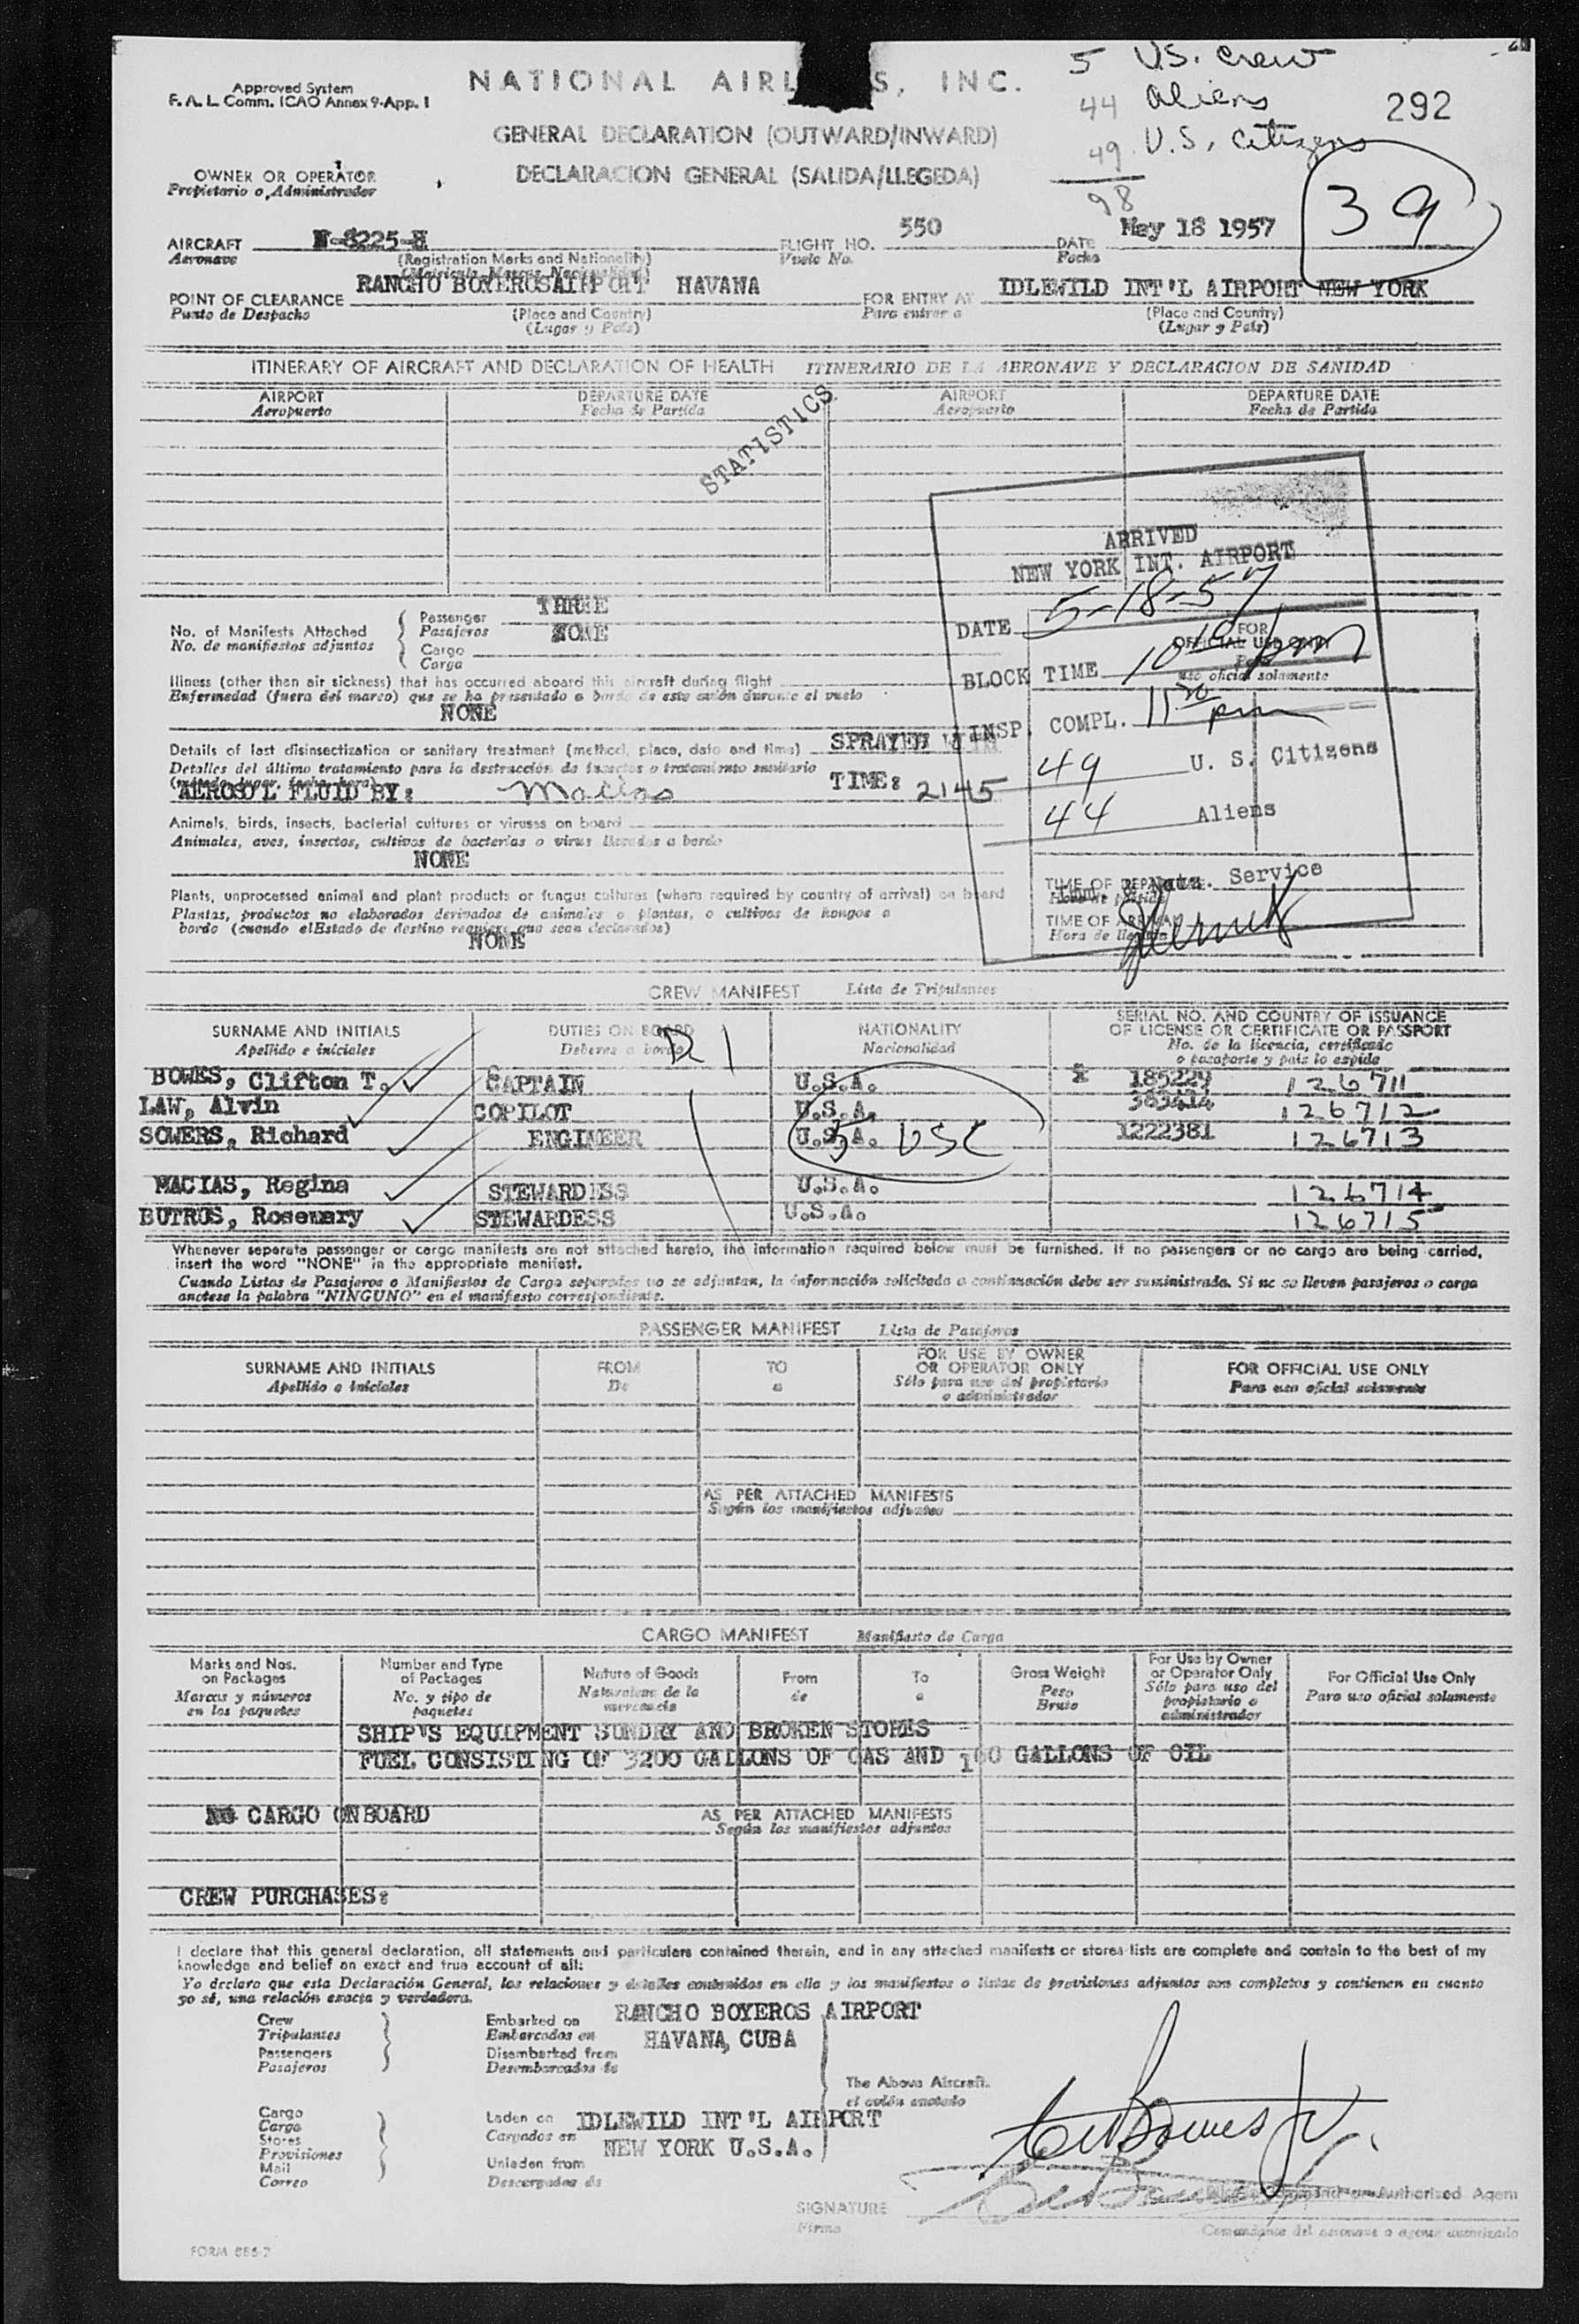 Approved System
F. A. L. Comm. ICAO Annex 9-App. 1
NATIONAL AIRL S, INC.
5 U.S. Crew
44 aliens
49 U.S. Citizens
98
292
39
GENERAL DECLARATION (OUTWARD/INWARD)
DECLARACION GENERAL (SALIDA/LLEGEDA)
OWNER OR OPERATOR
Propietario o Administrador
AIRCRAFT N-8225-H FLIGHT NO. 550 DATE May 18 1957
Aeronave (Registration Marks and Nationality) Vuelo No. Fecha
POINT OF CLEARANCE RANCHO BOYEROS AIRPORT HAVANA FOR ENTRY AT IDLEWILD INT'L AIRPORT NEW YORK
Punto de Despacho (Place and Country) Para entrar a (Place and Country)
(Lugar y País) (Lugar y País)
ITINERARY OF AIRCRAFT AND DECLARATION OF HEALTH ITINERARIO DE LA AERONAVE Y DECLARACION DE SANIDAD
AIRPORT DEPARTURE DATE AIRPORT DEPARTURE DATE
Aeropuerto Fecha de Partida Aeropuerto Fecha de Partida
STATISTICS
ARRIVED
NEW YORK INT. AIRPORT
DATE 5-18-57
BLOCK TIME 10 10 pm
INSP. COMPL. 11 20 pm
49 U. S. Citizens
44 Aliens
Imm. & Natz. Service
FOR
OFFICIAL USE ONLY
Para
uso oficial solamente
TIME OF DEPARTURE
Hora de partida
TIME OF ARRIVAL
Hora de llegada
No. of Manifests Attached Passenger THREE
No. de manifiestos adjuntos Pasajeros
Cargo NONE
Carga
Illness (other than air sickness) that has occurred aboard this aircraft during flight
Enfermedad (fuera del mareo) que se ha presentado a bordo de este avión durante el vuelo
NONE
Details of last disinsectization or sanitary treatment (method, place, date and time) SPRAYED WITH
Detalles del último tratamiento para la destrucción de insectos o tratamiento sanitario
AEROSOL FLUID BY: Macias TIME: 2145
Animals, birds, insects, bacterial cultures or viruses on board
Animales, aves, insectos, cultivos de bacterias o virus llevados a bordo
NONE
Plants, unprocessed animal and plant products or fungus cultures (where required by country of arrival) on board
Plantas, productos no elaborados derivados de animales o plantas, o cultivos de hongos a
bordo (cuando el Estado de destino requiere que sean declarados)
NONE
CREW MANIFEST Lista de Tripulantes
SURNAME AND INITIALS DUTIES ON BOARD NATIONALITY SERIAL NO. AND COUNTRY OF ISSUANCE
OF LICENSE OR CERTIFICATE OR PASSPORT
Apellido e iniciales Deberes a bordo Nacionalidad No. de la licencia, certificado
o pasaporte y país lo expide
D 1
BOWES, Clifton T. CAPTAIN U.S.A. 185229 126711
LAW, Alvin COPILOT U.S.A. 126712
SOWERS, Richard ENGINEER U.S.A. 1222381 126713
5 USC
MACIAS, Regina STEWARDESS U.S.A. 126714
BUTRUS, Rosemary STEWARDESS U.S.A. 126715
Whenever separate passenger or cargo manifests are not attached hereto, the information required below must be furnished. If no passengers or no cargo are being carried,
insert the word "NONE" in the appropriate manifest.
Cuando Listas de Pasajeros o Manifiestos de Carga separados no se adjuntan, la información solicitada a continuación debe ser suministrada. Si no se lleven pasajeros o carga
anotese la palabra "NINGUNO" en el manifiesto correspondiente.
PASSENGER MANIFEST Lista de Pasajeros
SURNAME AND INITIALS FROM TO FOR USE BY OWNER
OR OPERATOR ONLY FOR OFFICIAL USE ONLY
Apellido e iniciales De a Sólo para uso del propietario
o administrador Para uso oficial solamente
AS PER ATTACHED MANIFESTS
Según los manifiestos adjuntos
CARGO MANIFEST Manifiesto de Carga
Marks and Nos.
on Packages
Marcas y números
en los paquetes
Number and Type
of Packages
No. y tipo de
paquetes
Nature of Goods
Naturaleza de la
mercancia
From
de
To
a
Gross Weight
Peso
Bruto
For Use by Owner
or Operator Only
Sólo para uso del
propietario o
administrador
For Official Use Only
Para uso oficial solamente
SHIP'S EQUIPMENT SUNDRY AND BROKEN STORES
FUEL CONSISTING OF 3200 GALLONS OF GAS AND 100 GALLONS OF OIL
NO CARGO ON BOARD AS PER ATTACHED MANIFESTS
Según los manifiestos adjuntos
CREW PURCHASES:
I declare that this general declaration, all statements and particulars contained therein, and in any attached manifests or stores lists are complete and contain to the best of my
knowledge and belief an exact and true account of all:
Yo declaro que esta Declaración General, las relaciones y detalles contenidos en ella y los manifiestos o listas de provisiones adjuntos son completos y contienen en cuanto
yo sé, una relación exacta y verdadera.
Crew
Tripulantes
Passengers
Pasajeros
Embarked on RANCHO BOYEROS AIRPORT
Embarcados en HAVANA, CUBA
Disembarked from
Desembarcados de
The Above Aircraft.
el avión anotado
Cargo
Carga
Stores
Provisiones
Mail
Correo
Laden on IDLEWILD INT'L AIRPORT
Cargados en NEW YORK U.S.A.
Unladen from
Descargados de
SIGNATURE Authorized Agent
Firma Comandante del aeronave o agente autorizado
FORM 886-2